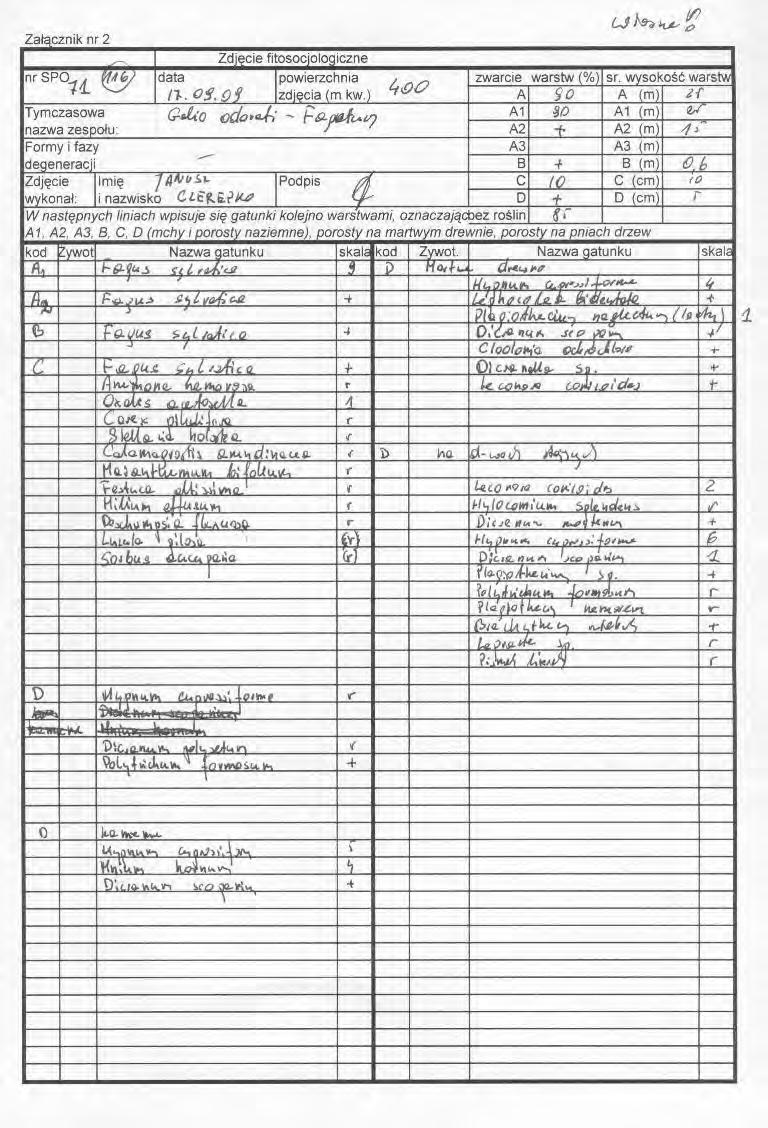 własne
Załącznik nr 2
Zdjęcie fitosocjologiczne
nr SPO 71 116 data 17.09.09 powierzchnia zdjęcia (m kw.) 400
zwarcie warstw (%) sr. wysokość warstw
A 90 A (m) 25
A1 90 A1 (m) 25
A2 + A2 (m) 15
A3 A3 (m)
B + B (m) 0,6
C 10 C (cm) 10
D + D (cm) 5
bez roślin 85
Tymczasowa nazwa zespołu: Galio odorati - Fagetum
Formy i fazy degeneracji —
Zdjęcie wykonał: Imię i nazwisko JANUSZ CZEREPKO Podpis
W następnych liniach wpisuje się gatunki kolejno warstwami, oznaczając
A1, A2, A3, B, C, D (mchy i porosty naziemne), porosty na martwym drewnie, porosty na pniach drzew
kod Żywot Nazwa gatunku skala kod Żywot. Nazwa gatunku skala
A1 Fagus sylvatica 9
A2 Fagus sylvatica +
B Fagus sylvatica +
C Fagus sylvatica +
Anemone nemorosa r
Oxalis acetosella 1
Carex pilulifera r
Stellaria holostea r
Calamagrostis arundinacea r
Maianthemum bifolium r
Festuca altissima r
Milium effusum r
Deschampsia flexuosa r
Luzula pilosa (r)
Sorbus aucuparia (r)
D Hypnum cupressiforme r
Dicranum scoparium
kamienie Mnium hornum
Dicranum polysetum r
Polytrichum formosum +
D kamienie
Hypnum cupressiform 5
Mnium hornum 4
Dicranum scoparium +
D Martwe drewno
Hypnum cupressiforme 4
Lophocolea bidentata +
Plagiothecium neglectum 1
Dicranum scoparium +
Cladonia ochrochlora +
Dicranella sp. +
Lecanora conizoides +
D na drzewach stojących
Lecanora conizoides 2
Hylocomium splendens r
Dicranum montanum +
Hypnum cupressiforme 6
Dicranum scoparium 1
Plagiothecium sp. +
Polytrichum formosum r
Plagiothecium nemorem r
+
Lepraria sp. r
r